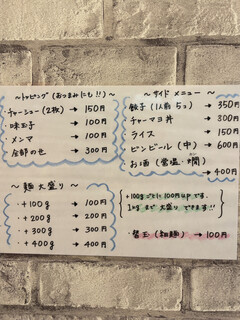 ～トッピング(おつまみにも!!)～
チャーシュー(2枚) → 150円
味玉子 → 100円
メンマ → 100円
→ 300円
～サイド メニュー～
餃子(1人前 5コ) → 350円
チャーマヨ丼 → 300円
ライス → 150円
ビンビール(中) → 600円
お酒(常温・燗)
→ 400円
～麺 大盛り～
・+100g → 100円
・+200g → 200円
・+300g → 300円
・+400g → 400円
+100gごとに100円upです。
1kgまで大盛りできます!!
・替玉(細麺) → 100円